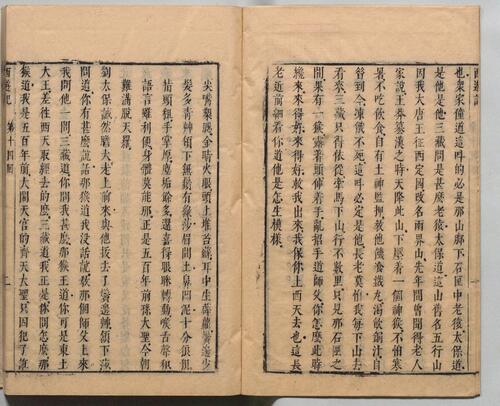 西遊記
也衆家僮道這呌的必是那山脚下石匣中老猿太保道
是他是他三藏問是甚麽老猿太保道這山舊名五行山
因我大唐王征西定國改名兩界山先年間曾聞得老人
家說王莽篡漢之時天降此山下壓着一個神猴不怕寒
暑不吃飲食自有土神監押教他饑飡鐵丸渴飲銅汁自
昔到今凍餓不死這呌必定是他長老莫怕我每下山去
看來三藏只得依從牽馬下山行不數里只見那石匣之
間果有一猴露着頭伸着手亂招手道師父你怎麽此時
纔來來得好來得好救我出來我保你上西天去也這長
老近前細看你道他是怎生模樣
尖嘴縮腮金睛火眼頭上堆苔蘚耳中生薜蘿鬢邊少
髮多青草頷下無鬚有綠莎眉間土鼻凹泥十分狼狽
指頭粗手掌厚塵垢餘多還喜得眼睛轉動喉舌聲和
語言雖利便身體莫能那正是五百年前孫大聖今朝
難滿脫天羅
劉太保誠然膽大走上前來與他拔去了鬢邊草頷下莎
問道你有甚麽說話那猴道我沒話說教那個師父上來
我問他一問三藏道你問我甚麽那猴王道你可是東土
大王差往西天取經去的麽三藏道我正是你問怎麽那
猴道我是五百年前大閙天宮的齊天大聖只因犯了誑
西遊記 第十四回